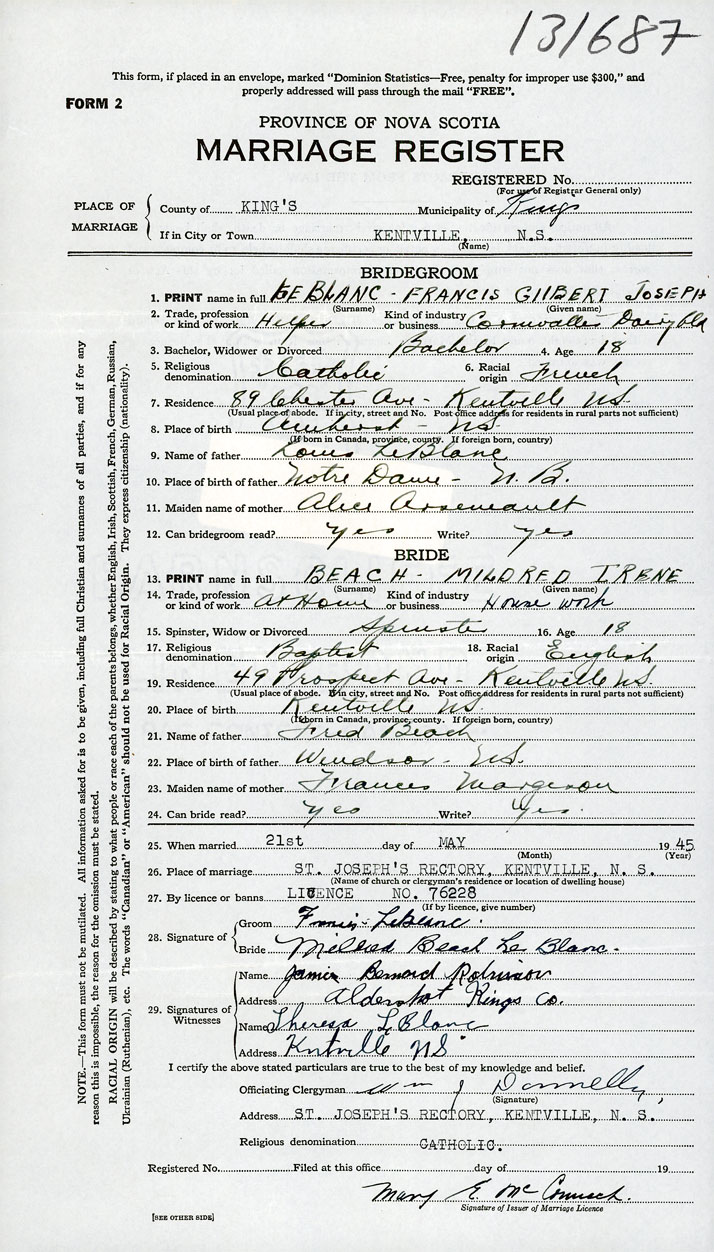 131687
This form, if placed in an envelope, marked "Dominion Statistics—Free, penalty for improper use $300," and
properly addressed will pass through the mail "FREE".
FORM 2
PROVINCE OF NOVA SCOTIA
MARRIAGE REGISTER
REGISTERED No.
(For use of Registrar General only)
PLACE OF MARRIAGE
County of KING'S Municipality of Kings
If in City or Town KENTVILLE, N.S.
(Name)
BRIDEGROOM
1. PRINT name in full LEBLANC - FRANCIS GILBERT JOSEPH
(Surname) (Given name)
2. Trade, profession or kind of work Helper Kind of industry or business Cornwallis Dairy Ltd
3. Bachelor, Widower or Divorced Bachelor 4. Age 18
5. Religious denomination Catholic 6. Racial origin French
7. Residence 89 Chester Ave - Kentville NS
(Usual place of abode. If in city, street and No. Post office address for residents in rural parts not sufficient)
8. Place of birth Amherst - NS.
(If born in Canada, province, county. If foreign born, country)
9. Name of father Louis LeBlanc
10. Place of birth of father Notre Dame - N.B.
11. Maiden name of mother Alice Arseneault
12. Can bridegroom read? yes Write? yes
BRIDE
13. PRINT name in full BEACH - MILDRED IRENE
(Surname) (Given name)
14. Trade, profession or kind of work At Home Kind of industry or business House work
15. Spinster, Widow or Divorced Spinster 16. Age 18
17. Religious denomination Baptist 18. Racial origin English
19. Residence 49 Prospect Ave - Kentville NS.
(Usual place of abode. If in city, street and No. Post office address for residents in rural parts not sufficient)
20. Place of birth Kentville NS.
(If born in Canada, province, county. If foreign born, country)
21. Name of father Fred Beach
22. Place of birth of father Windsor - NS.
23. Maiden name of mother Frances Margeson
24. Can bride read? yes Write? Yes.
25. When married 21st day of MAY 1945
(Month) (Year)
26. Place of marriage ST. JOSEPH'S RECTORY, KENTVILLE, N. S.
(Name of church or clergyman's residence or location of dwelling house)
27. By licence or banns LICENCE NO. 76228
(If by licence, give number)
28. Signature of
Groom Francis LeBlanc.
Bride Mildred Beach Le Blanc.
29. Signatures of Witnesses
Name James Bernard Robinson
Address Aldershot Kings Co.
Name Theresa LeBlanc
Address Kentville NS
I certify the above stated particulars are true to the best of my knowledge and belief.
Officiating Clergyman Wm J Donnelly,
(Signature)
Address ST. JOSEPH'S RECTORY, KENTVILLE, N. S.
Religious denomination CATHOLIC.
Registered No. Filed at this office day of 19
Mary E. McCormack.
Signature of Issuer of Marriage Licence
[SEE OTHER SIDE]
NOTE.—This form must not be mutilated. All information asked for is to be given, including full Christian and surnames of all parties, and if for any
reason this is impossible, the reason for the omission must be stated.
RACIAL ORIGIN will be described by stating to what people or race each of the parents belongs, whether English, Irish, Scottish, French, German, Russian,
Ukrainian (Ruthenian), etc. The words "Canadian" or "American" should not be used for Racial Origin. They express citizenship (nationality).